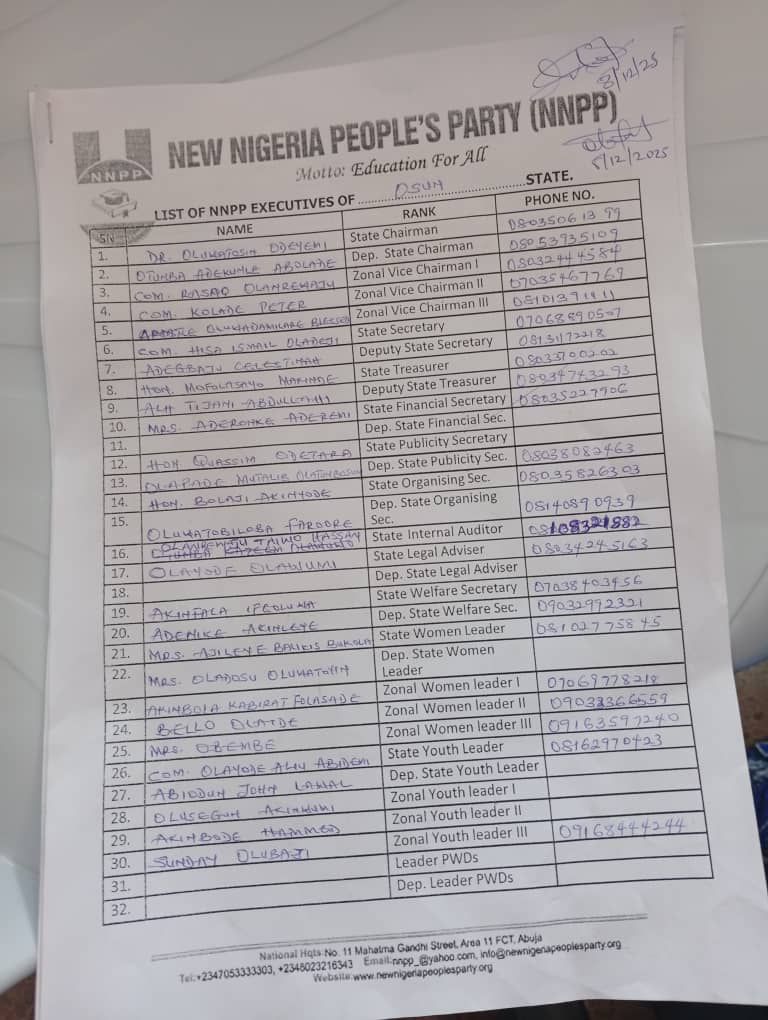 8/12/25
NNPP
NEW NIGERIA PEOPLE'S PARTY (NNPP)
Motto: Education For All
8/12/2025
LIST OF NNPP EXECUTIVES OF OSUN STATE.
SN NAME RANK PHONE NO.
1. DR. OLUWATOSIN ODEYEMI State Chairman 08035061399
2. OTUNBA ADEKUNLE ABOLADE Dep. State Chairman 08053935109
3. COM. RASAQ OLANREWAJU Zonal Vice Chairman I 08032444584
4. COM. KOLADE PETER Zonal Vice Chairman II 07035467769
5. OLUWADAMILARE BLESSING Zonal Vice Chairman III 08101391111
6. COM. HISA ISMAIL OLADEJI State Secretary 07068890507
7. ADEGBAJU CELESTINAH Deputy State Secretary 08131172218
8. HON. MOFOLASAYO MAKINDE State Treasurer 08033700202
9. ALH TIJANI ABDULLAHI Deputy State Treasurer 08034743293
10. MRS. ADERONKE ADEREMI State Financial Secretary 08035227906
11. Dep. State Financial Sec.
12. HON QUASSIM ODETARA State Publicity Secretary
13. OLAPADE MUTALIB OLATUNBOSUN Dep. State Publicity Sec. 08038082463
14. HON. BOLAJI AKINYODE State Organising Sec. 08035826303
15. OLUWATOBILOBA Dep. State Organising Sec. 08140890939
16. OLANREWAJU TAIWO HASSAN State Internal Auditor
17. OLAYODE OLAWUMI State Legal Adviser 08034245163
18. Dep. State Legal Adviser
19. AKINFALA IFEOLUWA State Welfare Secretary 07038403456
20. ADENIKE AKINLEYE Dep. State Welfare Sec. 09032992321
21. MRS. AJILEYE BALIKIS BUKOLA State Women Leader 08102775845
22. MRS. OLADOSU OLUWATOYIN Dep. State Women Leader
23. AKINBOLA KABIRAT FOLASADE Zonal Women leader I 07069778218
24. BELLO Zonal Women leader II 09032366559
25. MRS. OBEMBE Zonal Women leader III 09163597240
26. COM. OLAYODE ALIU ABIDEMI State Youth Leader 08162970423
27. ABIODUN JOHN LAWAL Dep. State Youth Leader
28. OLUSEGUN AKINWUMI Zonal Youth leader I
29. AKINBODE HAMMED Zonal Youth leader II
30. SUNDAY OLUBAJI Zonal Youth leader III 09168444244
31. Leader PWDs
32. Dep. Leader PWDs
National Hqts: No. 11 Mahatma Gandhi Street, Area 11 FCT, Abuja
Tel:+2347053333303, +2348023216343 Email:nnpp_@yahoo.com, info@newnigeriapeoplesparty.org
Website:www.newnigeriapeoplesparty.org